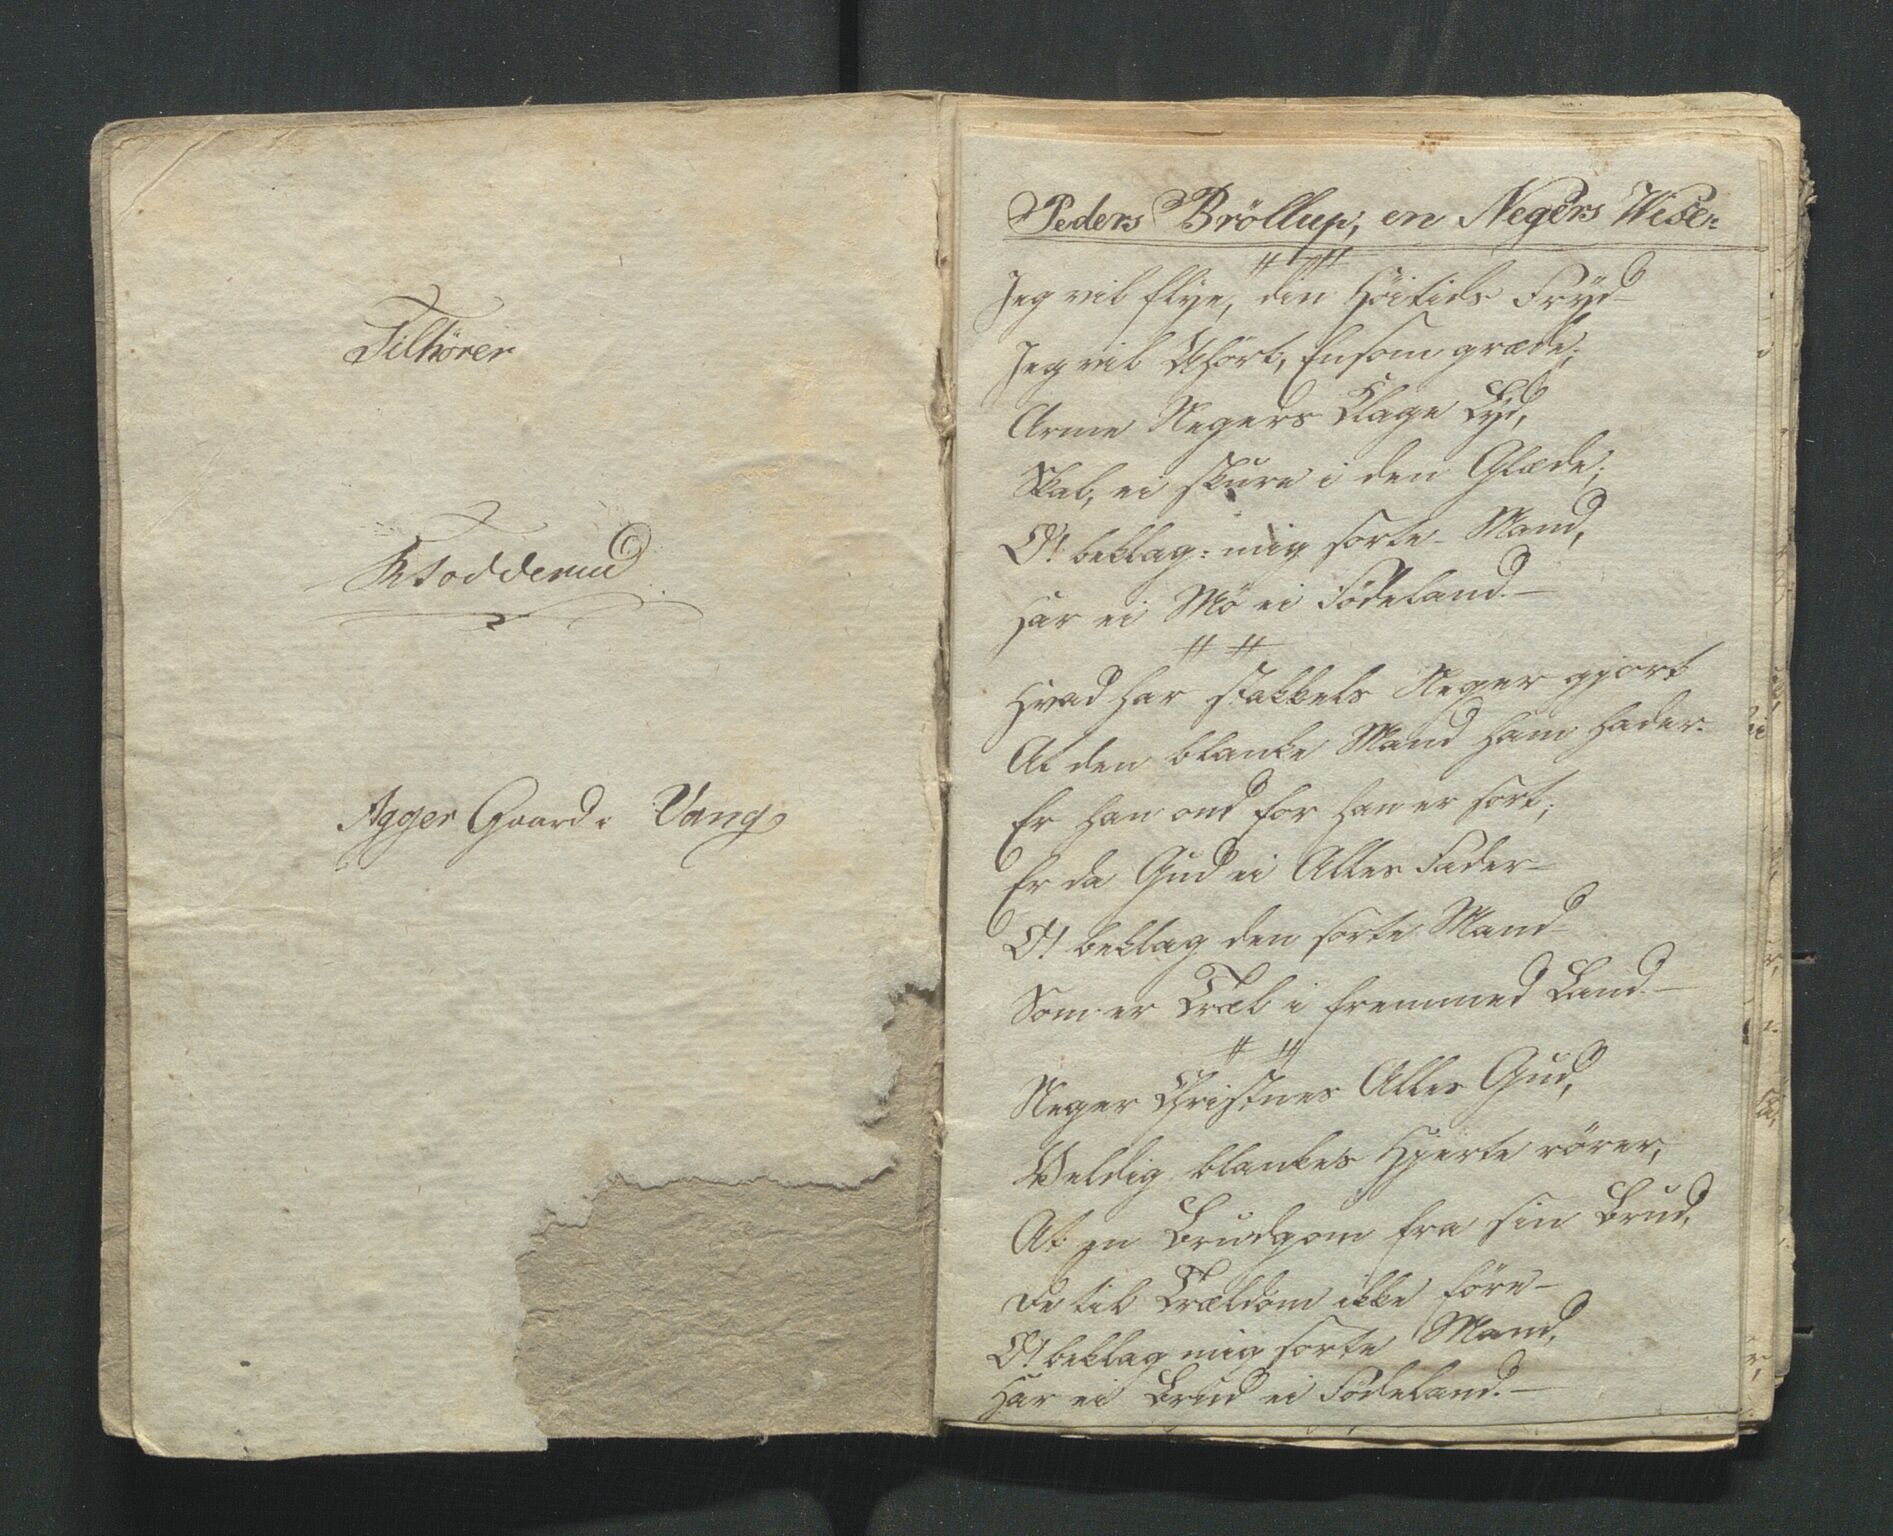 Tilhörer
K Sodderud
Agger Gaard i Vang
Peders Bröllup, en Negers Wise
Jeg vil flye, den Höitids Fryd
Jeg vil Uhört, Eensom græde;
Arme Negers Klage Lyd,
Skal, ei skure i den Glæde;
O! beklag: mig sorte Mand,
Har ei Mö ei Födeland. –
Hvad har stakkels Neger gjort
At den blanke Mand ham hader.
Er han ond for han er sort;
Er da Gud ei Alles Fader –
O! beklag den sorte Mand
Som er Træl i fremmed Land –
Neger Christnes Alles Gud,
Veldig blankes Hjerte rörer,
At en Brudgom fra sin Brud,
De til Trældom ikke före –
O! beklag mig sorte Mand,
Har ei Brud ei Födeland. –